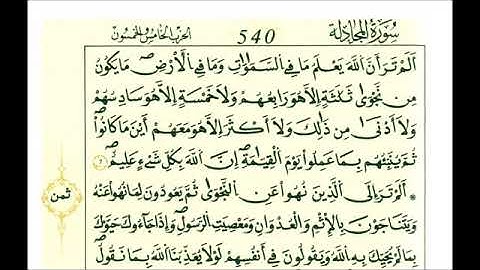 سُورَةُ الْمُجَادلة
540
الحزب الخامس والخمسون
أَلَمْ تَرَ أَنَّ اَللَّهَ يَعْلَمُ مَا فِي اِلسَّمَٰوَٰتِ وَمَا فِي اِلْأَرْضِ مَا يَكُونُ
مِن نَّجْوَىٰ ثَلَٰثَةٍ إِلَّا هُوَ رَابِعُهُمْ وَلَا خَمْسَةٍ إِلَّا هُوَ سَادِسُهُمْ
وَلَا أَدْنَىٰ مِن ذَٰلِكَ وَلَا أَكْثَرَ إِلَّا هُوَ مَعَهُمْ أَيْنَ مَا كَانُواْ
ثُمَّ يُنَبِّئُهُم بِمَا عَمِلُواْ يَوْمَ اَلْقِيَٰمَةِ إِنَّ اَللَّهَ بِكُلِّ شَيْءٍ عَلِيمٌ
أَلَمْ تَرَ إِلَى اَلَّذِينَ نُهُواْ عَنِ اِلنَّجْوَىٰ ثُمَّ يَعُودُونَ لِمَا نُهُواْ عَنْهُ
وَيَتَنَٰجَوْنَ بِالْإِثْمِ وَالْعُدْوَٰنِ وَمَعْصِيَتِ اِلرَّسُولِ وَإِذَا جَاءُوكَ حَيَّوْكَ
بِمَا لَمْ يُحَيِّكَ بِهِ اِللَّهُ وَيَقُولُونَ فِي أَنفُسِهِمْ لَوْلَا يُعَذِّبُنَا اَللَّهُ بِمَا نَقُولُ
ثمن